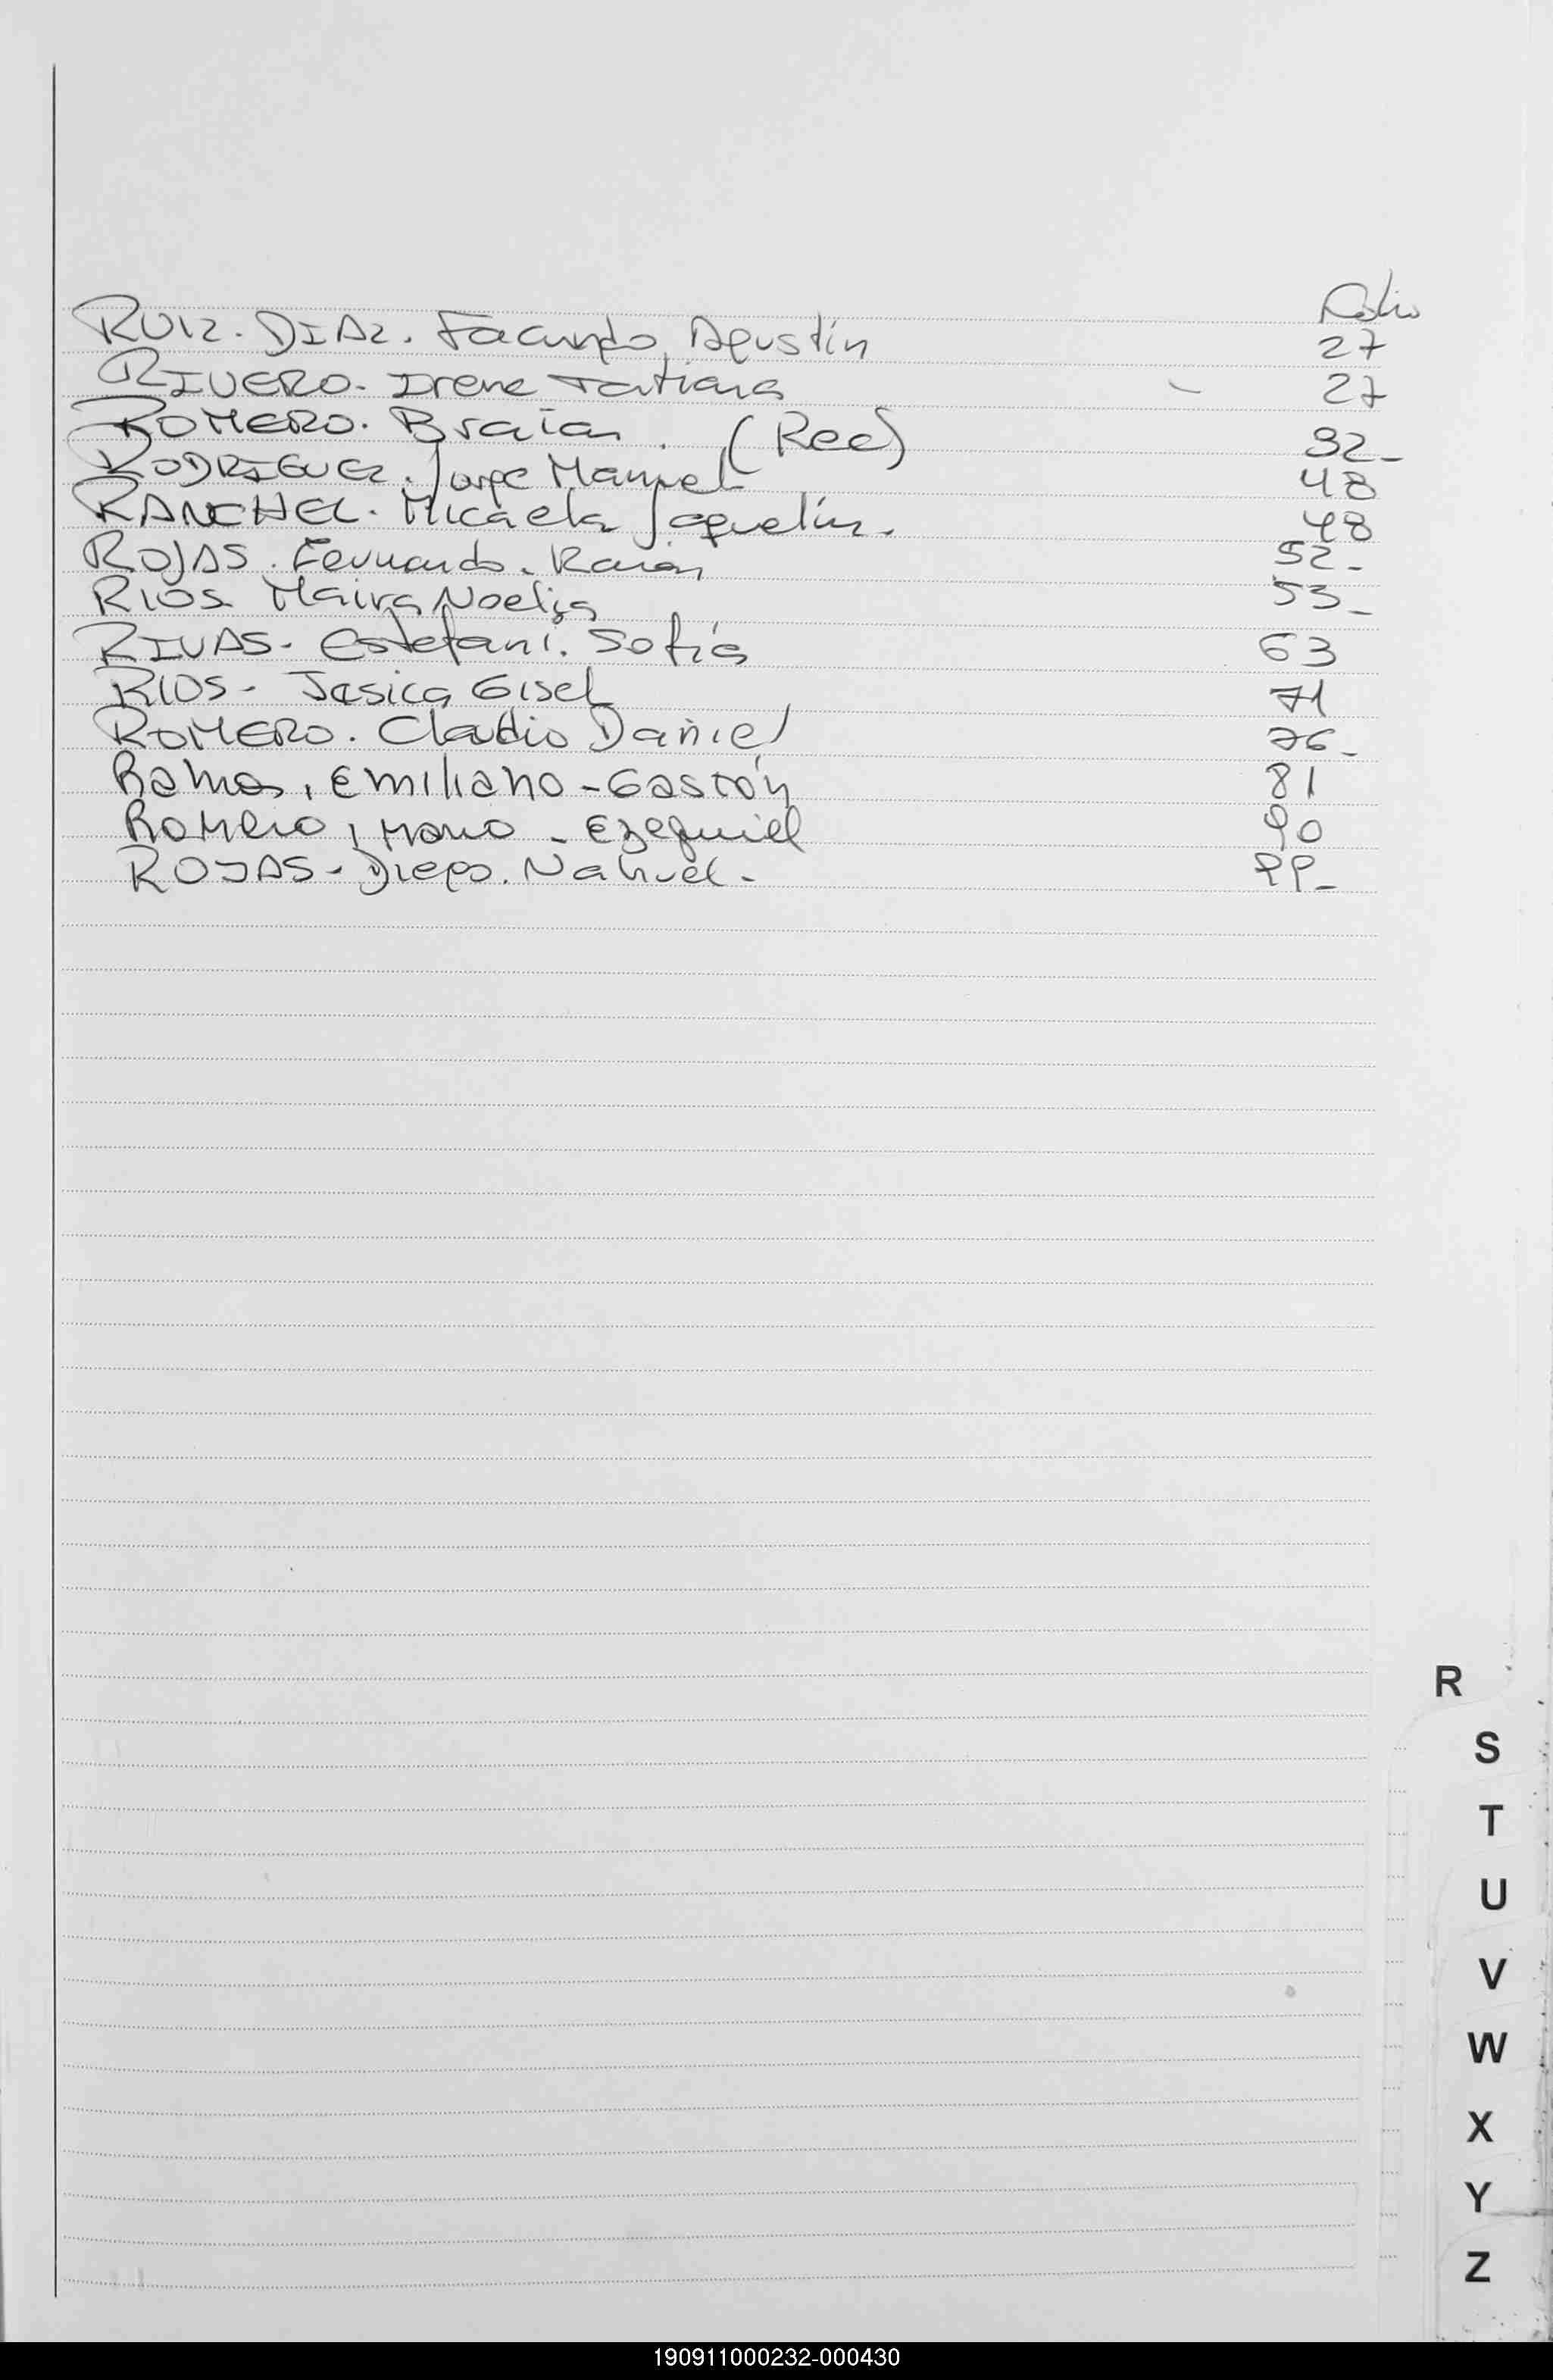 Folio
RUIZ. DIAZ. Facundo Agustín 27
RIVERO. Irene Tatiana - 27
ROMERO. Braian. (Rec) 32-
RODRIGUEZ. Jorge Manuel 48
RANCHEL. Micaela Jaquelin. 48
ROJAS. Fernando. 52-
RIOS Maira Noelia 53-
RIVAS. Estefani. Sofía 63
RIOS- Jesica Gisel 71
ROMERO. Claudio Daniel 76-
Ramos, Emiliano-Gastón 81
Romero, Mario - Ezequiel 90
ROJAS-Diego. Nahuel. 99-
R
S
T
U
V
W
X
Y
Z
190911000232-000430